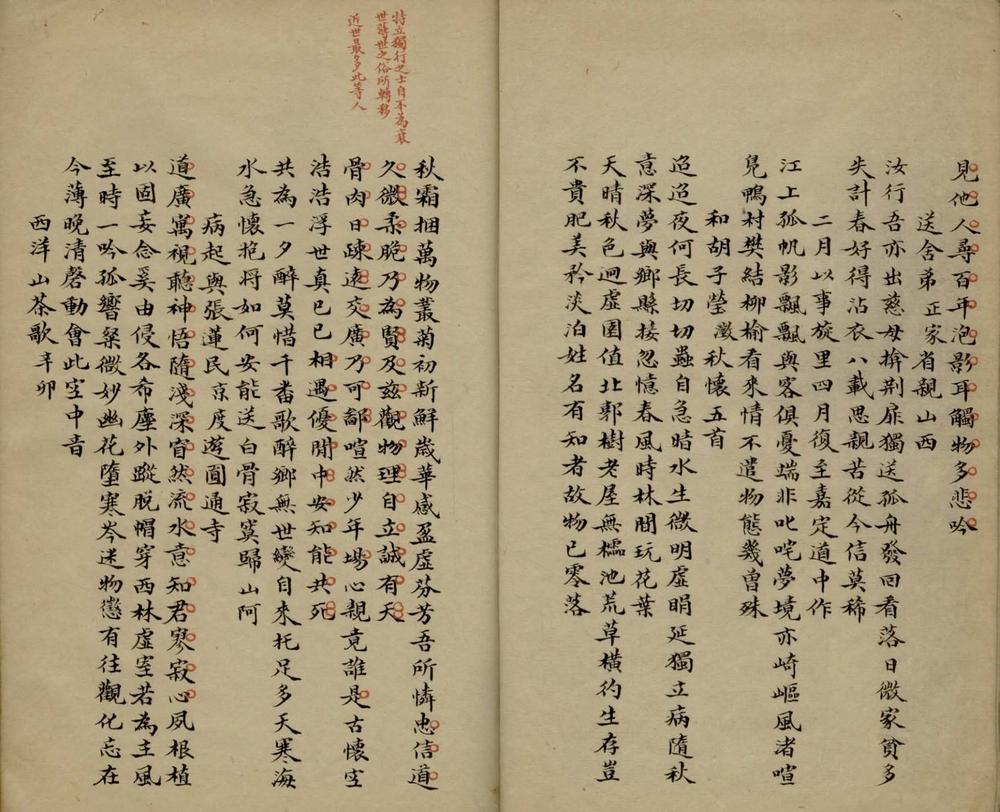 見他人尋百年泡影耳觸物多悲吟
送舍弟正家省親山西
汝行吾亦出慈母掩荆扉獨送孤舟發回看落日微家貧多
失計春好得沾衣八載思親苦從今信莫稀
二月以事旋里四月復至嘉定道中作
江上孤帆影飄飄與客俱憂端非叱咤夢境亦崎嶇風渚喧
鳧鴨村樊結柳榆看來情不遣物態幾曾殊
和胡子瑩澂秋懷五首
迢迢夜何長切切蟲自急暗水生微明虛幌延獨立病隨秋
意深夢與鄉縣接忽憶春風時林間玩花葉
天晴秋色迥虛園值北郭樹老屋無檽池荒草橫彴生存豈
不貴肥美矜淡泊姓名有知者故物已零落
特立獨行之士自不為衰
世薄世之俗所轉移
近世最多此等人
秋霜捆萬物叢菊初新鮮歲華感盈虛芬芳吾所憐忠信道
久微柔脆乃為賢及茲觀物理自立誠有天
骨肉日疎遠交廣乃可鄙喧然少年場心親竟誰是古懷空
浩浩浮世真已已相遇優閒中安知能共死
共為一夕醉莫惜千畨歌醉鄉無世變自來托足多天寒海
水急懷抱將如何安能送白骨寂寞歸山阿
病起與張蓮民京度遊圓通寺
道廣寓視聽神悟隨淺深窅然流水意知君寥寂心夙根植
以固妄念奚由侵各希塵外蹤脫帽穿西林虛室若為主風
至時一吟孤響粲微妙幽花墮寒岑迷物戀有往觀化忘在
今薄晚清磬動會此空中音
西洋山茶歌辛卯